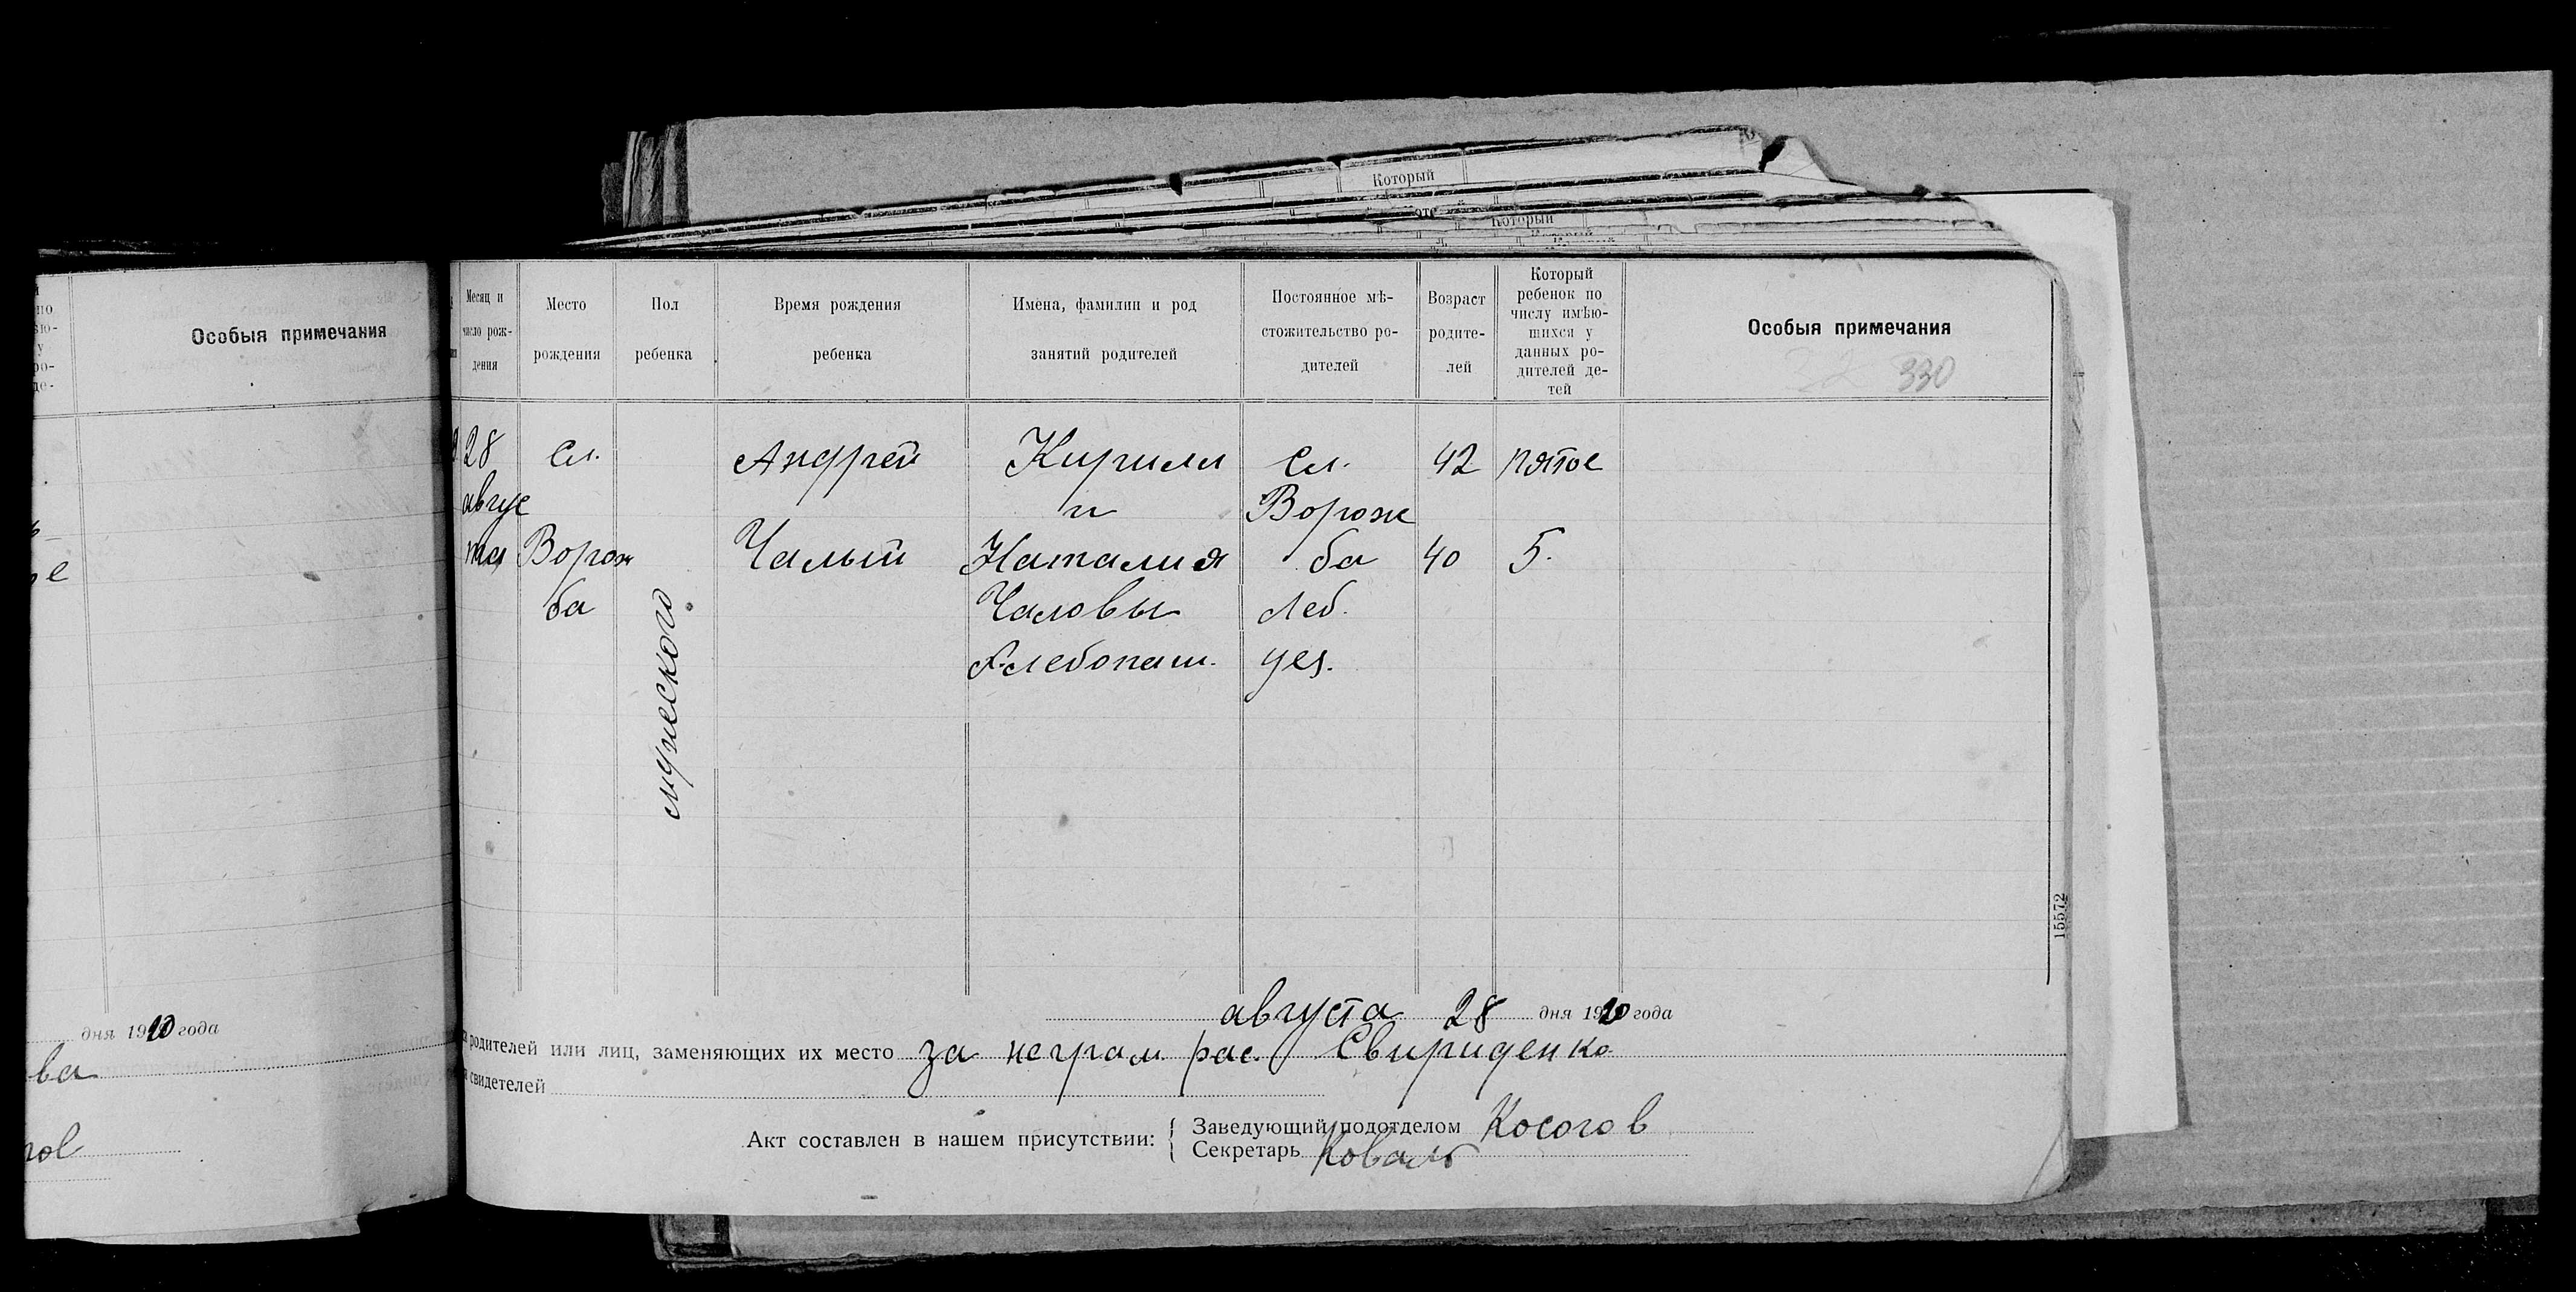 Который
Который
по
ію-
у
ро-
де-
Особыя примечания
е
дня 1920 года
ва
Месяц и
число рож-
дения
Место
рождения
Пол
ребенка
Время рождения
ребенка
Имена, фамилии и род
занятий родителей
Постоянное мѣ-
стожительство ро-
дителей
Возраст
родите-
лей
Который
ребенок по
числу имѣю-
шихся у
данных ро-
дителей де-
тей
Особыя примечания
330
28
авгус
та
Сл.
Ворож
ба
мужеского
Андрей
Чалый
Кирилл
и
Наталия
Чаловы
Хлебопаш.
Сл.
Ворож
ба
Леб.
уез.
42
40
пятое
5.
15572
августа 28 дня 1920 года
родителей или лиц, заменяющих их место за неграм. рас. Свириденко
свидетелей
Акт составлен в нашем присутствии:
Заведующий подотделом Косогов
Секретарь Коваль